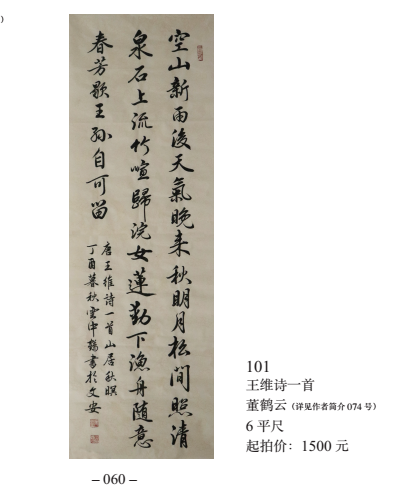 )
空山新雨後天氣晚来秋明月松間照清
泉石上流竹喧歸浣女蓮動下漁舟随意
春芳歇王孙自可留
唐王维詩一首山居秋暝
丁酉暮秋雲中鶴書於文安
101
王维诗一首
董鹤云（详见作者简介 074 号）
6 平尺
起拍价：1500 元
– 060 –